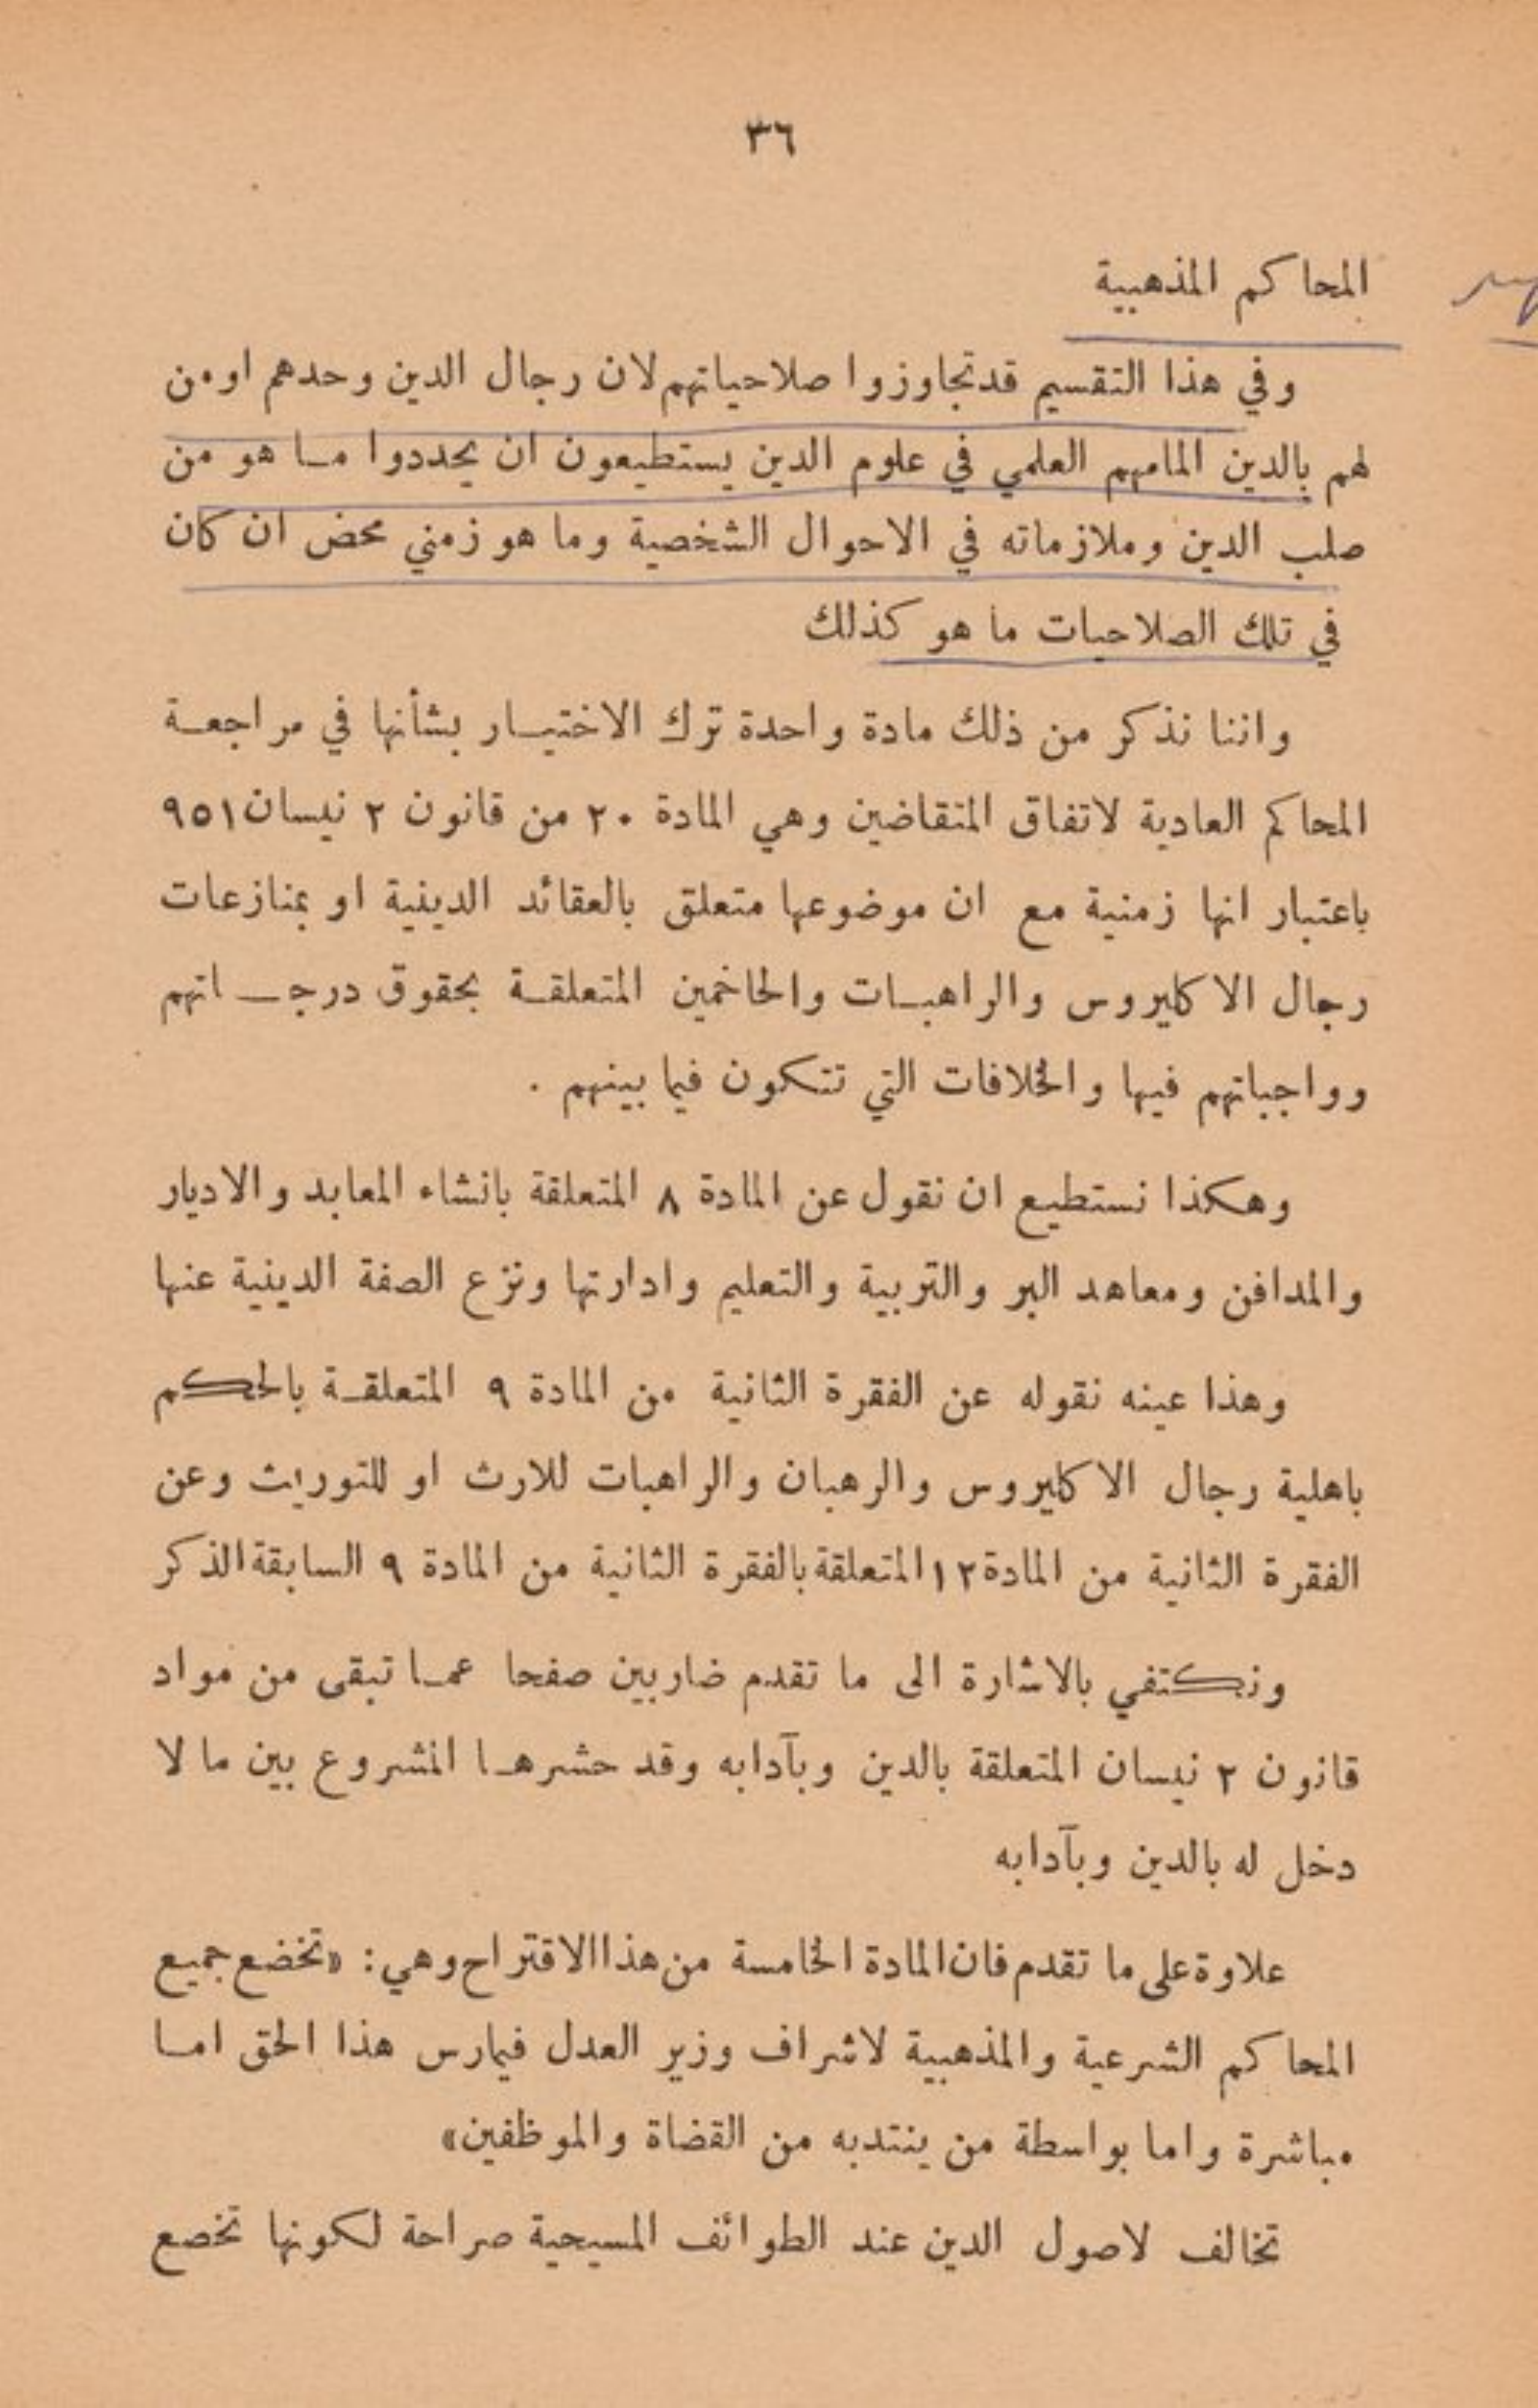 ٣٦
المحاكم المذهبية
وفي هذا التقسيم قد تجاوزوا صلاحياتهم لان رجال الدين وحدهم او من
لهم بالدين المامهم العلمي في علوم الدين يستطيعون ان يحددوا مــا هو من
صلب الدين وملازماته في الاحوال الشخصية وما هو زمني محض ان كان
في تلك الصلاحيات ما هو كذلك
واننا نذكر من ذلك مادة واحدة ترك الاختيــار بشأنها في مراجعــة
المحاكم العادية لاتفاق المتقاضين وهي المادة ٢٠ من قانون ٢ نيسان ٩٥١
باعتبار انها زمنية مع ان موضوعها متعلق بالعقائد الدينية او بمنازعات
رجال الاكليروس والراهبــات والحاخمين المتعلقــة بحقوق درجــاتهم
وواجباتهم فيها والخلافات التي تتكون فيما بينهم .
وهكذا نستطيع ان نقول عن المادة ٨ المتعلقة بانشاء المعابد والاديار
والمدافن ومعاهد البر والتربية والتعليم وادارتها ونزع الصفة الدينية عنها
وهذا عينه نقوله عن الفقرة الثانية من المادة ٩ المتعلقــة بالحكم
باهلية رجال الاكليروس والرهبان والراهبات للارث او للتوريث وعن
الفقرة الثانية من المادة ١٢ المتعلقة بالفقرة الثانية من المادة ٩ السابقة الذكر
ونكتفي بالاشارة الى ما تقدم ضاربين صفحا عمــا تبقى من مواد
قانون ٢ نيسان المتعلقة بالدين وبآدابه وقد حشرهــا المشروع بين ما لا
دخل له بالدين وبآدابه
علاوة على ما تقدم فان المادة الخامسة من هذا الاقتراح وهي: «تخضع جميع
المحاكم الشرعية والمذهبية لاشراف وزير العدل فيمارس هذا الحق امــا
مباشرة واما بواسطة من ينتدبه من القضاة والموظفين»
تخالف لاصول الدين عند الطوائف المسيحية صراحة لكونها تخصع